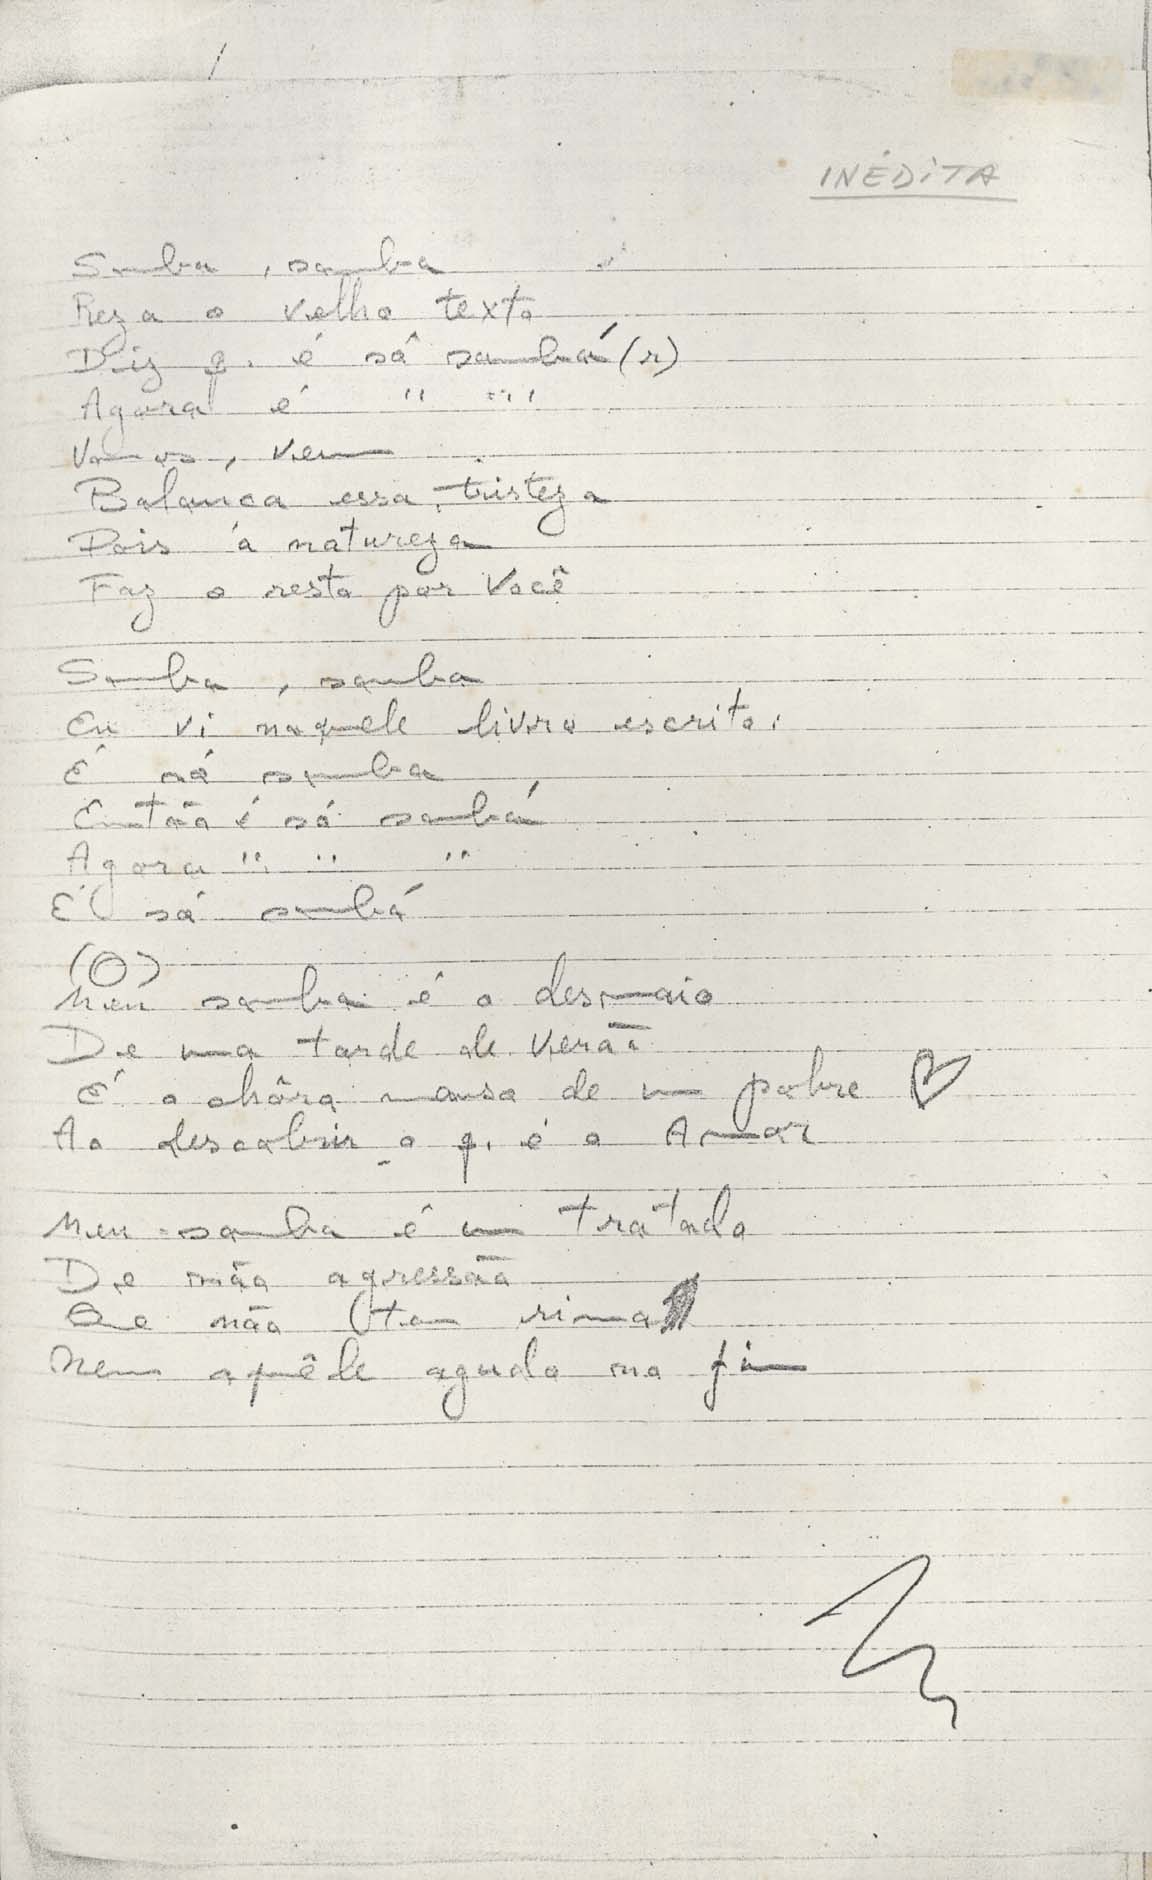 INÉDITA
Samba, samba
Reza o velho texto
Diz q. é só sambá(r)
Agora é " " "
Vamos, vem
Balança essa tristeza
Pois a natureza
Faz o resto por Você
Samba, samba
Eu vi naquele livro escrito.
É só samba
Então é só sambá
Agora " " "
É só sambá
(O)
Meu samba é o desmaio
De uma tarde de verão
É o chôro manso de um pobre
Ao descobrir o q. é o Amor
Meu samba é um tratado
De não agressão
Que não tem rima
Nem aquêle agudo no fim